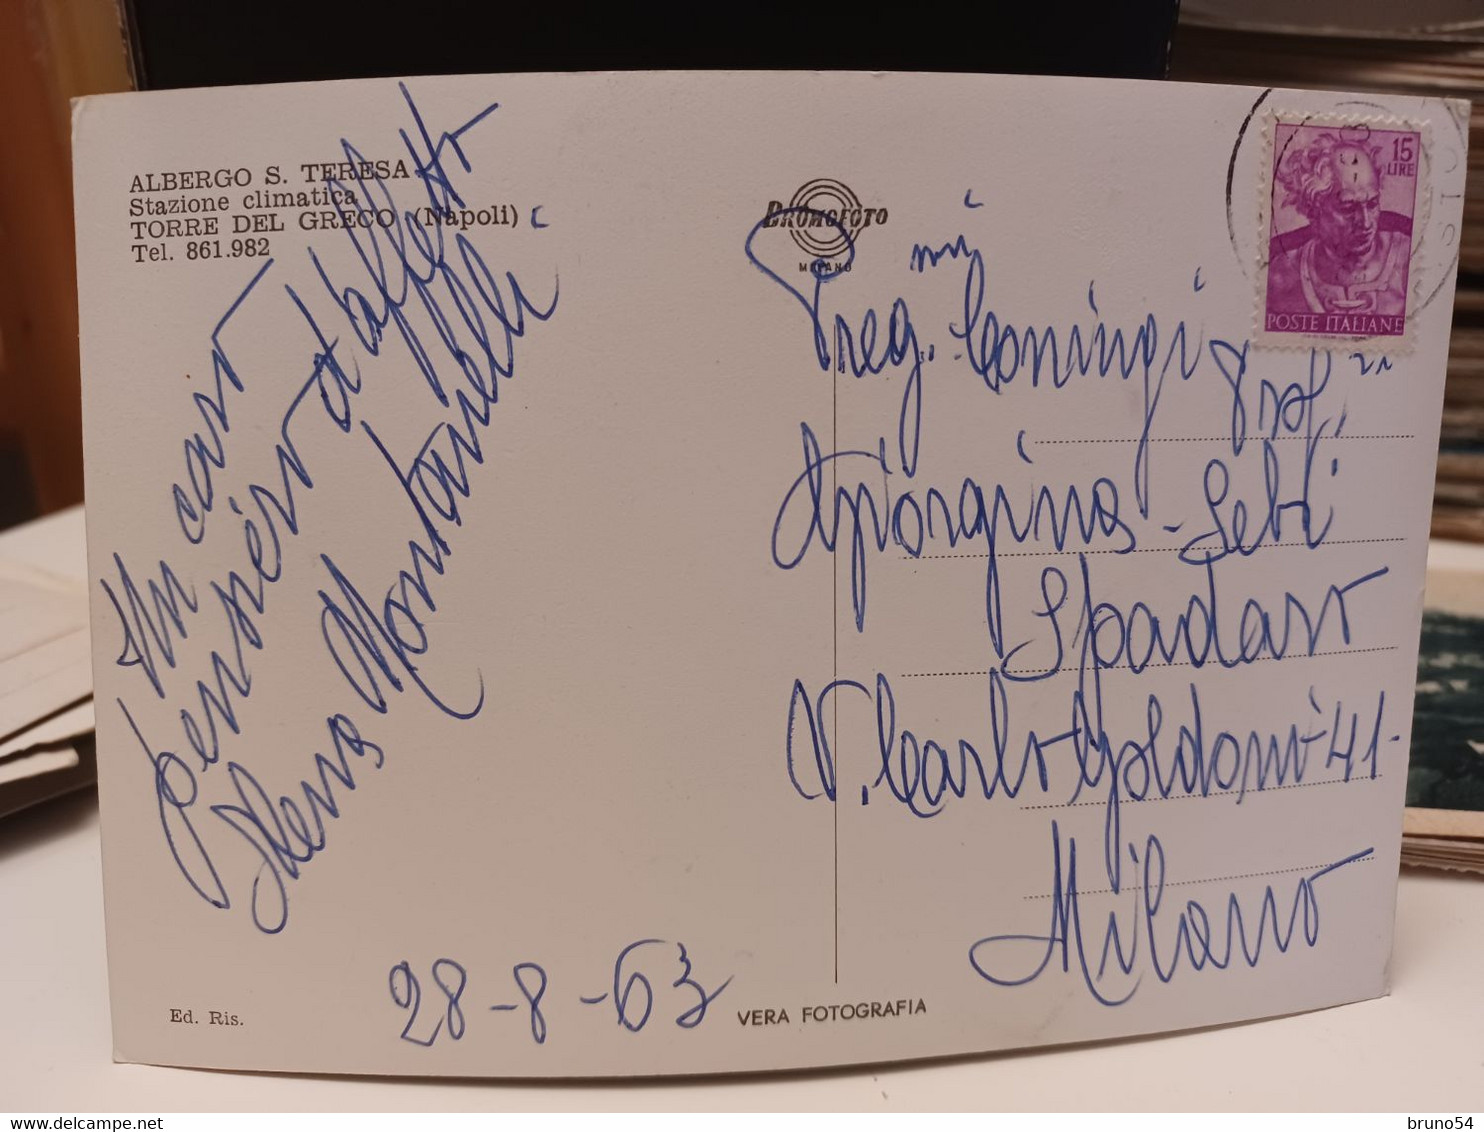 ALBERGO S. TERESA
Stazione climatica
TORRE DEL GRECO (Napoli)
Tel. 861.982
Un caro
pensiero ed affetto
Elena Montanelli
28-8-63
Ed. Ris.
BROMOFOTO
MILANO
VERA FOTOGRAFIA
15
LIRE
POSTE ITALIANE
Preg.mi Coniugi Prof.
Giorgina - Sebi
Spadaro
V. Carlo Goldoni 41-
Milano
bruno54